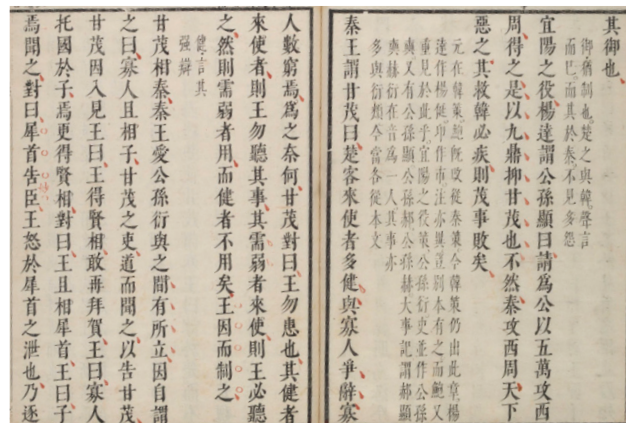 其御也
御猶制也楚之與韓聲言
而已而其於秦不見多怨
宜陽之役楊達謂公孫顯曰請為公以五萬攻西
周得之是以九鼎抑甘茂也不然秦攻西周天下
惡之其救韓必疾則茂事敗矣
元在韓策鮑既改從秦策今韓策仍出此章楊
達作楊侹
重見於此乎宜陽之役策公孫衍史並作公孫
奭又有公孫顯公孫郝公孫赫大事記謂郝顯
奭赫衍在言為一人其事亦
多與衍類今當各從本文
秦王謂甘茂曰楚客來使者多健與寡人爭辭寡
人數窮焉為之奈何甘茂對曰王勿患也其健者
來使者則王勿聽其事其需弱者來使則王必聽
之然則需弱者用而健者不用矣王因而制之
健言其
強辯
甘茂相秦秦王愛公孫衍與之間有所立因自謂
之曰寡人且相子甘茂之吏道而聞之以告甘茂
甘茂因入見王曰王得賢相敢再拜賀王曰寡人
托國於子焉更得賢相對曰王且相犀首王曰子
焉聞之對曰犀首告臣王怒於犀首之泄也乃逐